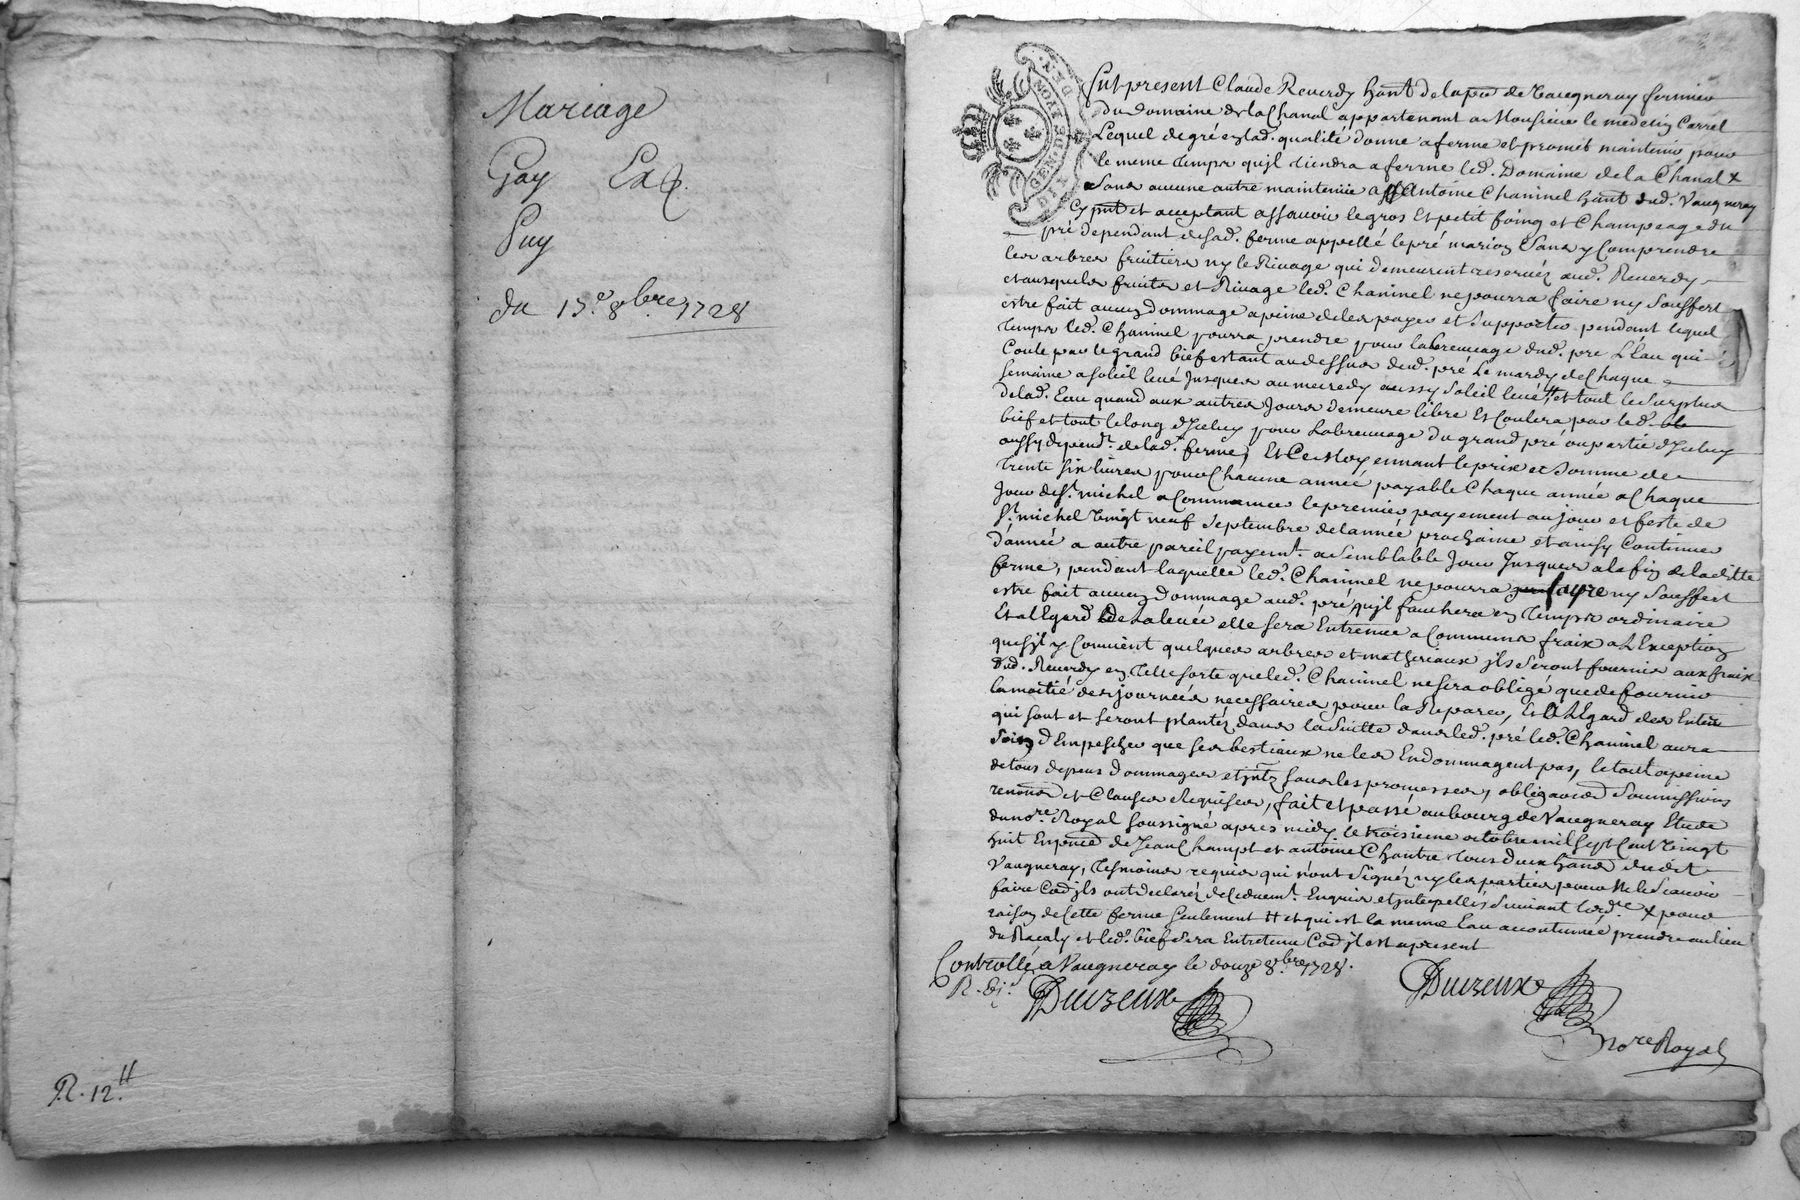 Mariage
Gay Exp.
Puy
du 15.e 8bre 1728
R. 12.ll
GEN. DE LYON
Fut present Claude Reverdy hant de la psse de Vaugneray fermier
du Domaine de la Chanal appartenant a Monsieur le medecin Carrel
Lequel de gré en lad. qualité donne a ferme et promet maintenir pour
le meme temps qu'jl tiendra a ferme led. Domaine de la Chanal x
Sans aucune autre maintenüe a Antoine Chaninel hant dud. Vaugneray
Cy pnt et acceptant assavoir le gros et petit foing et Champeage du
pré dependant de sad. ferme appellé le pré marion Sans y Comprendre
les arbres fruitiers ny le Rivage qui demeurent reservéz aud. Reverdy
et ausquels fruits et Rivage led. Chaninel ne pourra faire ny Souffert
estre fait aucun dommage a peine de les payer et Supporter pendant lequel
temps led. Chaninel pourra prendre pour labreuvage dud. pre L'Eau qui
Coule par le grand bief estant au dessus dud. pré Le mardy de Chaque
Semaine a soleil levé Jusques au mecredy aussy Soleil levé H et tout le Surplus
de lad. Eau quand aux autres Jours demeure libre Et Coulera par led.
bief et tout le long d'Jceluy pour Labreuvage du grand pré ou partie d'Jceluy
aussy depend.t de lad. ferme, Et Ce Moyennant le prix et Somme de
trente six livres pour Chacune année payable Chaque année a Chaque
Jour de St. michel a Commancer le premier payement au jour et feste de
St. michel vingt neuf Septembre de lannée prochaine et ainsy Continuer
d'année a autre pareil payem.t a Semblable Jour Jusques a la fin de la ditte
ferme, pendant laquelle led. Chaninel ne pourra faire ny Souffert
estre fait aucun dommage aud. pré qu'jl fauchera en temps ordinaire
Et a l'Egard de la levée elle sera Entretenue a Communs fraix a L'Exception
que s'jl y Convient quelques arbres et matheriaux jls Seront fournis aux fraix
dud. Reverdy en telle sorte que led. Chaninel ne sera obligé que de fournir
la moitié des journées necessaires pour la Reparer, Et a L'Egard des
qui sont et seront plantéz dans la Suitte dans led. pré led. Chaninel aura
Soing d'Empescher que ses bestiaux ne les Endommagent pas, le tout a peine
de tous depens dommages et jntz sous les promesses, obligaons Soumissions
renons et Clauses Requises, fait et passé au bourg de Vaugneray Etude
du nore. Royal soussigné apres midy le troisieme octobre mil Sept Cent vingt
huit En pnce de Jean Champt et antoine Chantre tous deux hans dudit
Vaugneray, tesmoins requis qui n'ont Signéz ny les parties pour Ne le Scavoir
faire Co'e jls ont declaréz de Ce duem.t Enquis et jnterpellés Suivant lordce x pour
raison de Cette ferme seulement H et qui est la meme Eau accoutumée prendre au lieu
du Racaly et led. bief sera Entretenu Co'e jl est a present
Controllé a Vaugneray le douze 8bre 1728.
DuvzeuX DuvzeuX
nore Royal